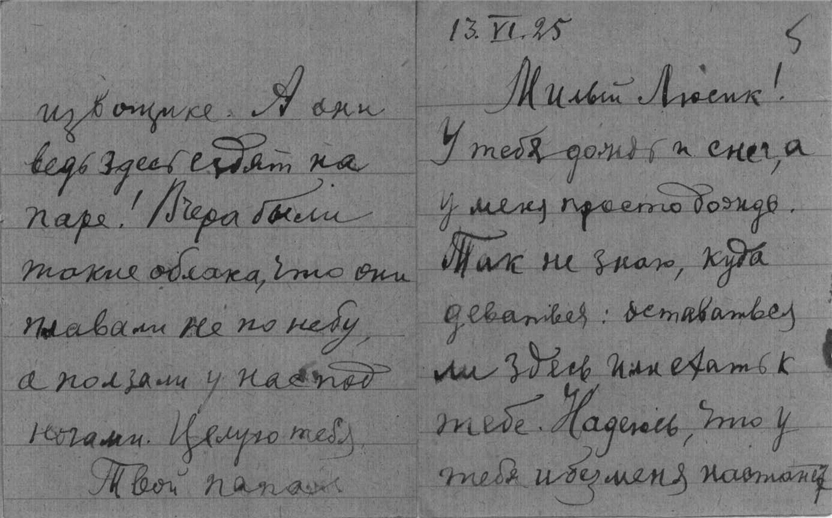 13.VI.25 5
Милый Люсик!
У тебя дождь и снег, а
у меня просто дождь.
Так не знаю, куда
деваться: оставаться
ли здесь или ехать к
тебе. Надеюсь, что у
тебя и без меня настанет
извощике. А они
ведь здесь ездят на
паре! Вчера были
такие облака, что они
плавали не по небу,
а ползали у нас под
ногами. Целую тебя.
Твой папа